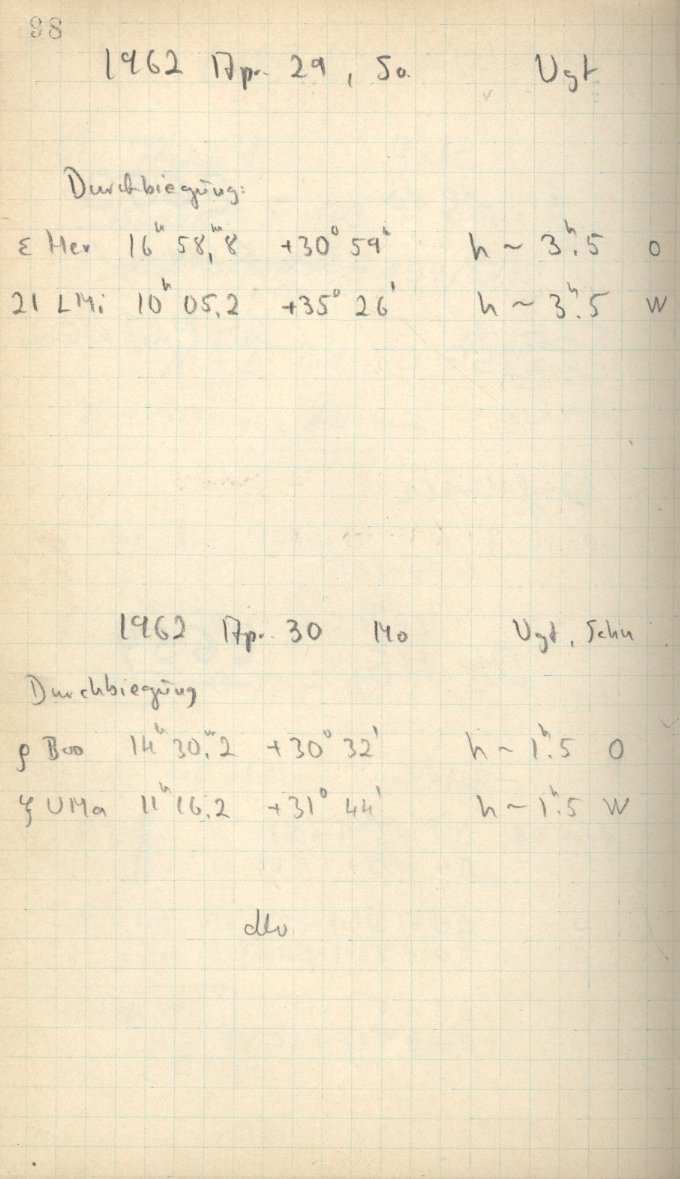 98
1962 Apr. 29, So. Vgt
Durchbiegung:
ε Her 16ʰ 58,ᵐ8 +30° 59' h ~ 3ʰ.5 O
21 LMi 10ʰ 05.2 +35° 26' h ~ 3ʰ.5 W
1962 Apr. 30 Mo Vgt, Schu
Durchbiegung
ρ Boo 14ʰ 30.ᵐ2 +30° 32' h ~ 1ʰ.5 O
UMa 11ʰ 16.2 +31° 44' h ~ 1ʰ.5 W